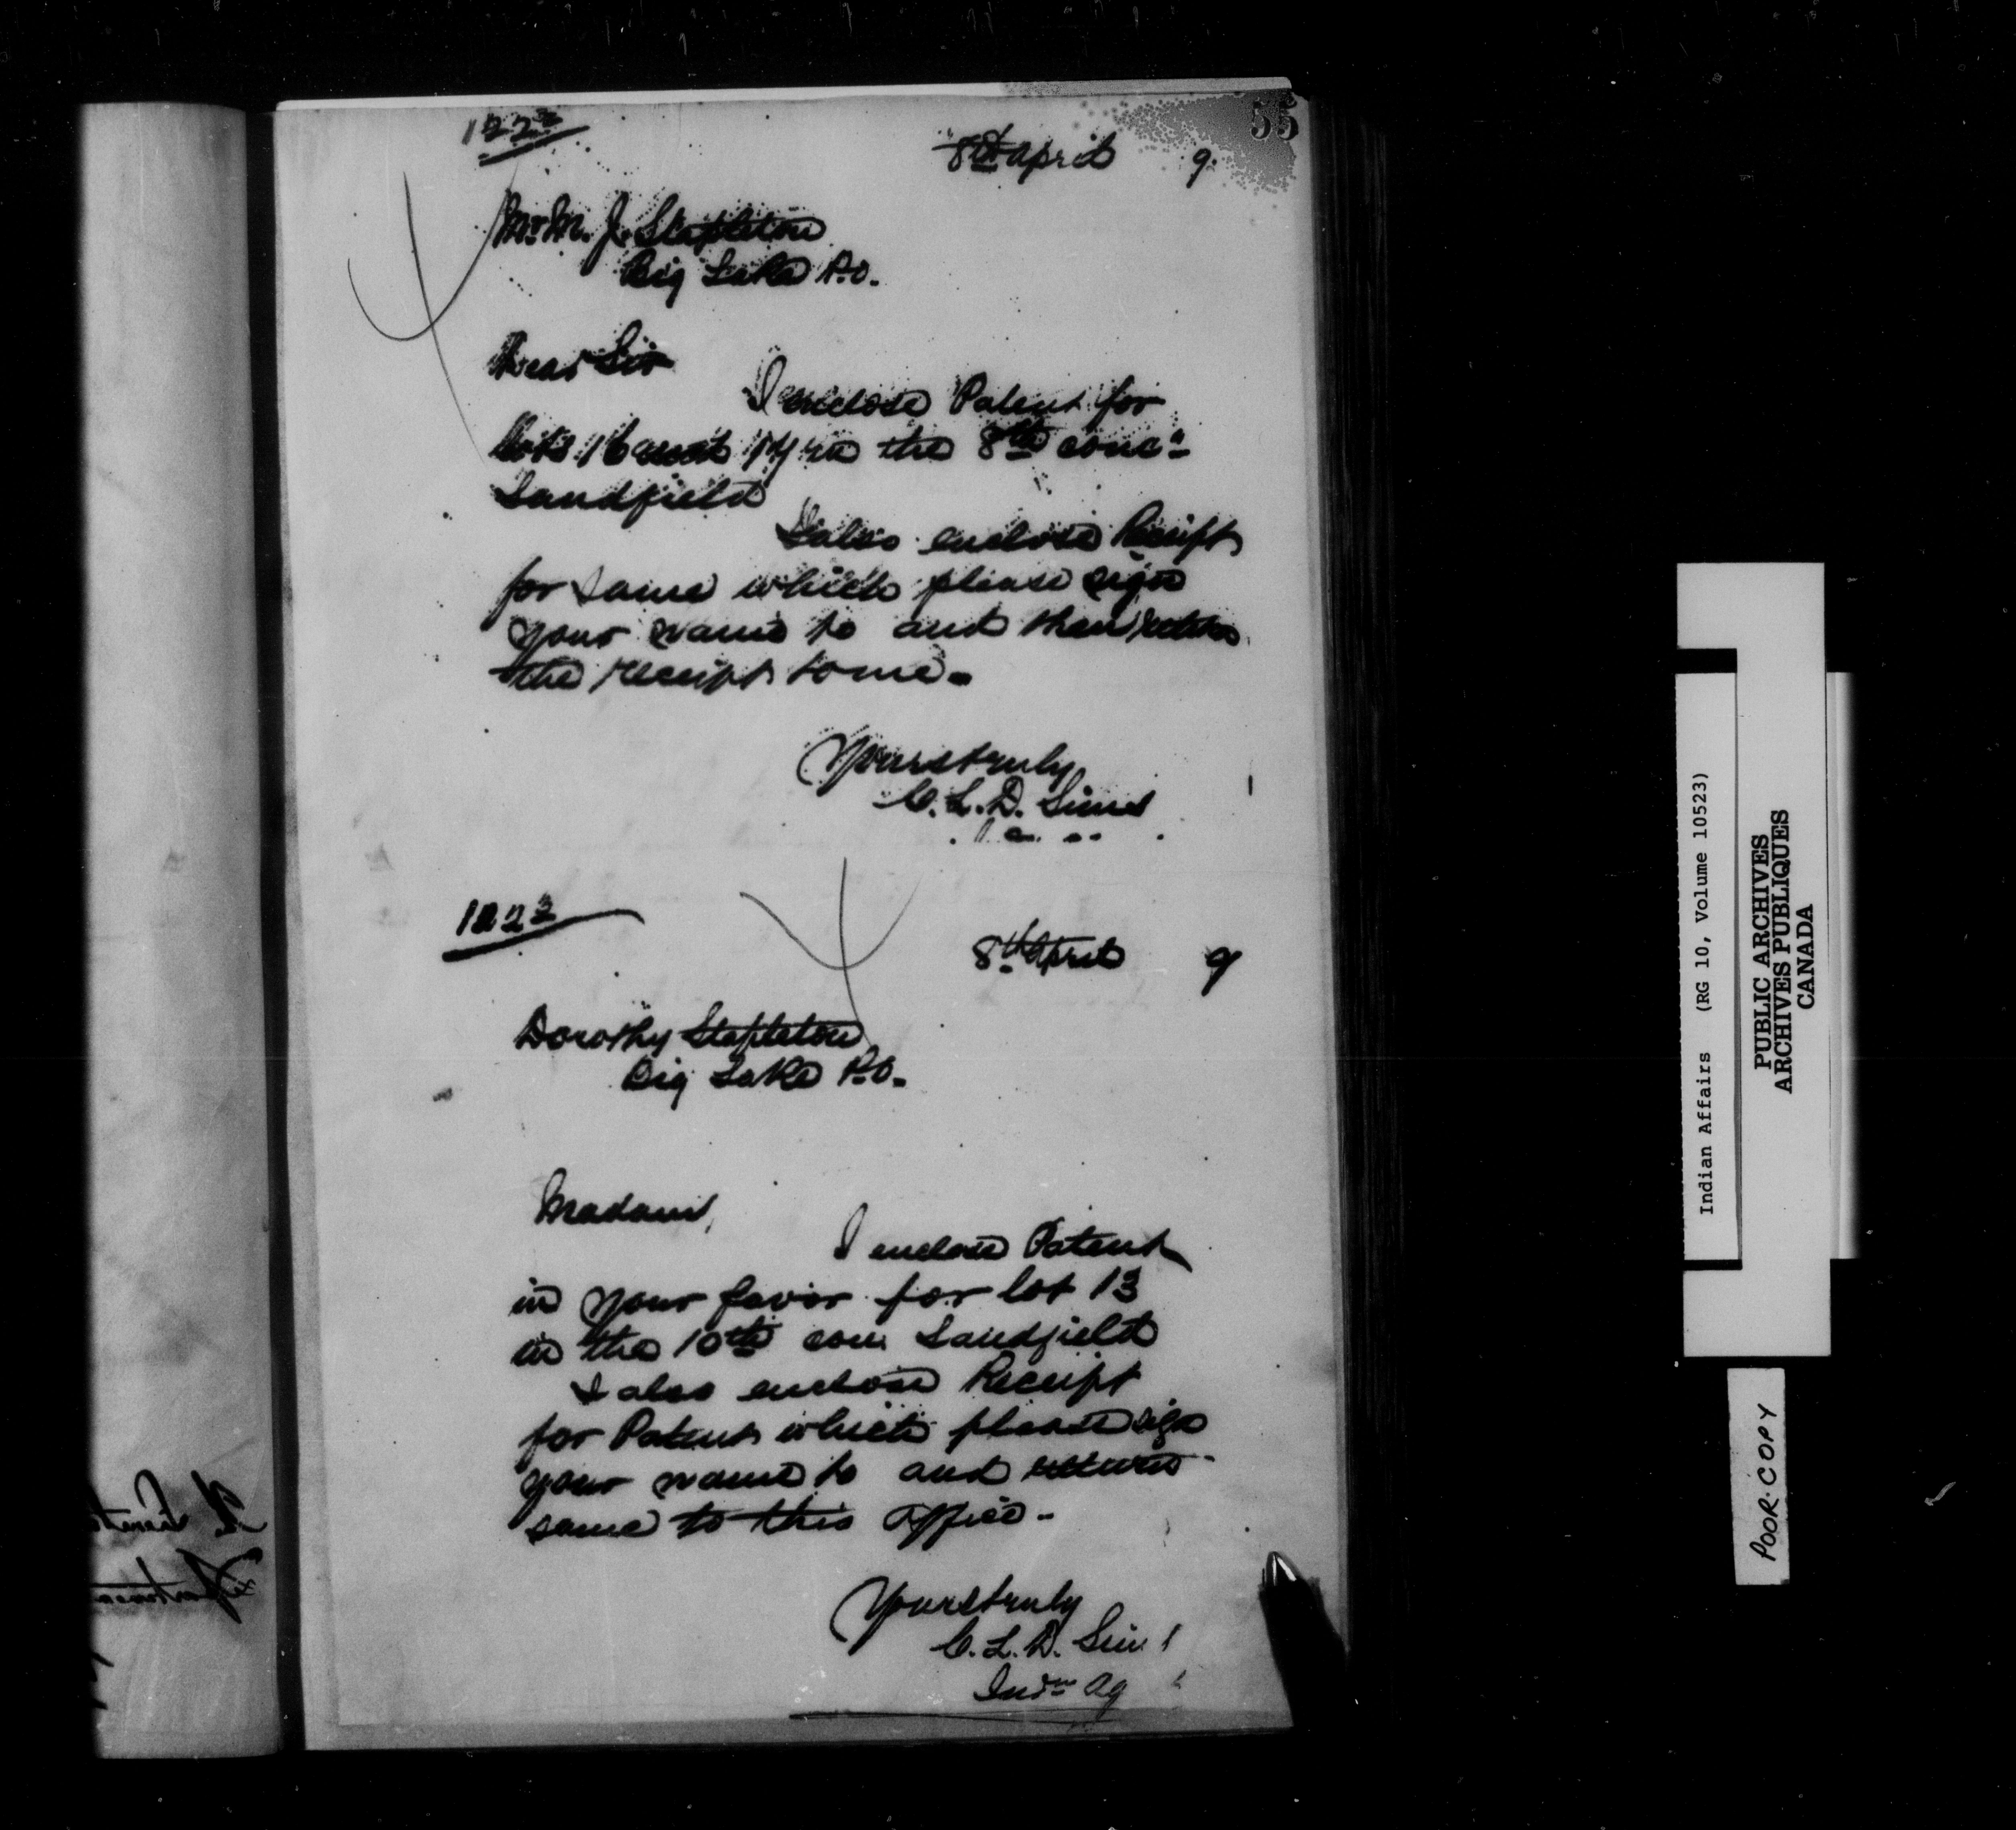 55
1222
8th April 9
Mr. M. J. Stapleton
Big Lake P.O.
Dear Sir
I enclose Patent for
lots 16 and 17 in the 8th conc.
Sandfield
I also enclose Receipt
for same which please sign
your name to and then return
the receipt to me.
Yours truly
C. L. D. Sims
1222
8th April 9
Dorothy Stapleton
Big Lake P.O.
Madam,
I enclose Patent
in your favor for lot 13
in the 10th con. Sandfield
I also enclose Receipt
for Patent which please sign
your name to and return
same to this office.
Yours truly
C. L. D. Sims
Indn Ag
Indian Affairs (RG 10, Volume 10523)
PUBLIC ARCHIVES
ARCHIVES PUBLIQUES
CANADA
POOR COPY